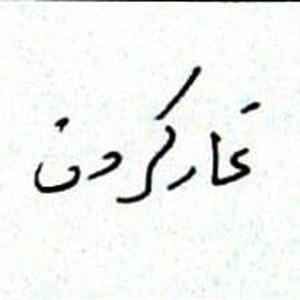 غارکردن